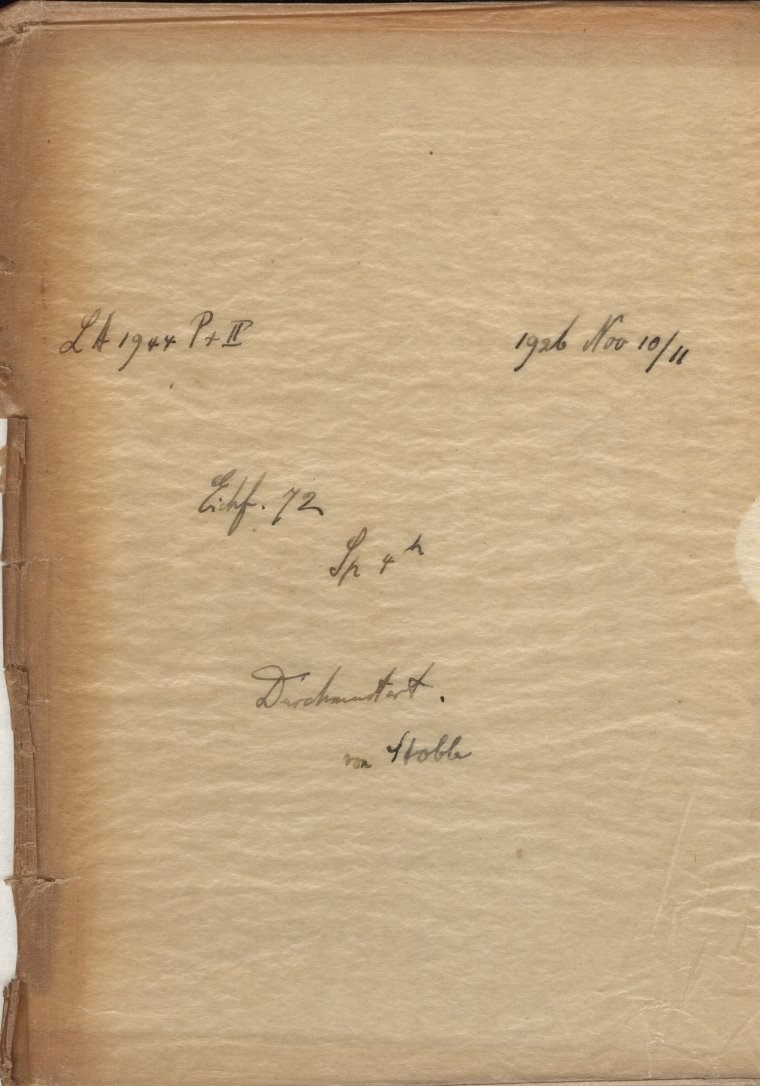 LA 1944 P+II 1926 Nov 10/11
Eichf. 72
Sp 4h
Durchmustert.
von Stobbe